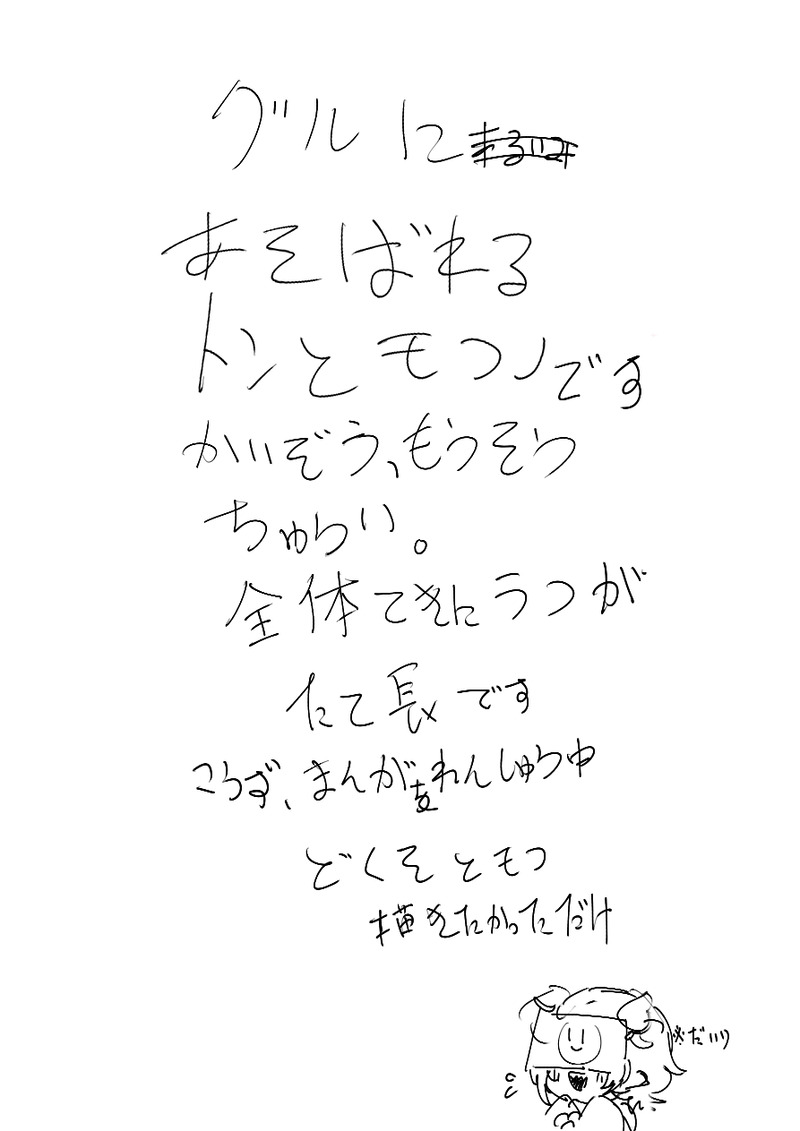 グルに
あそばれる
トンとモつノです
かいぞう、もうそう
ちゅうい。
全体てきにうつが
たて長です
こうず、まんがもれんしゅう中
どくそともつ
描きたかっただけ
※だいり